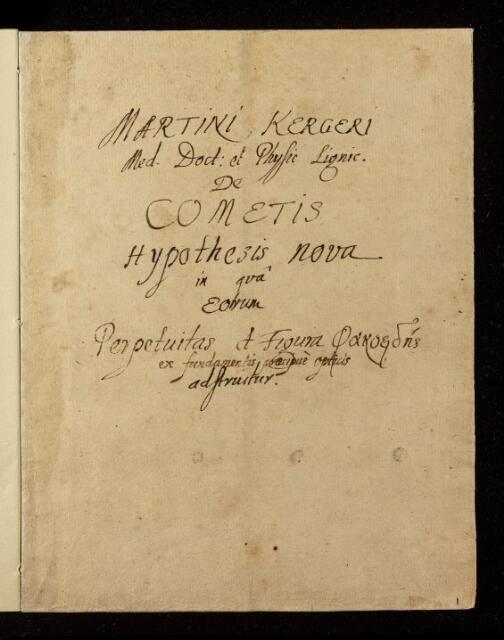 MARTINI KERGERI
Med. Doct: et Physic Lignic.
De
COMETIS
Hypothesis nova
in quâ
Eorum
Perpetuitas et Figura
ex fundamentis præcipuè opticis
adstruitur.